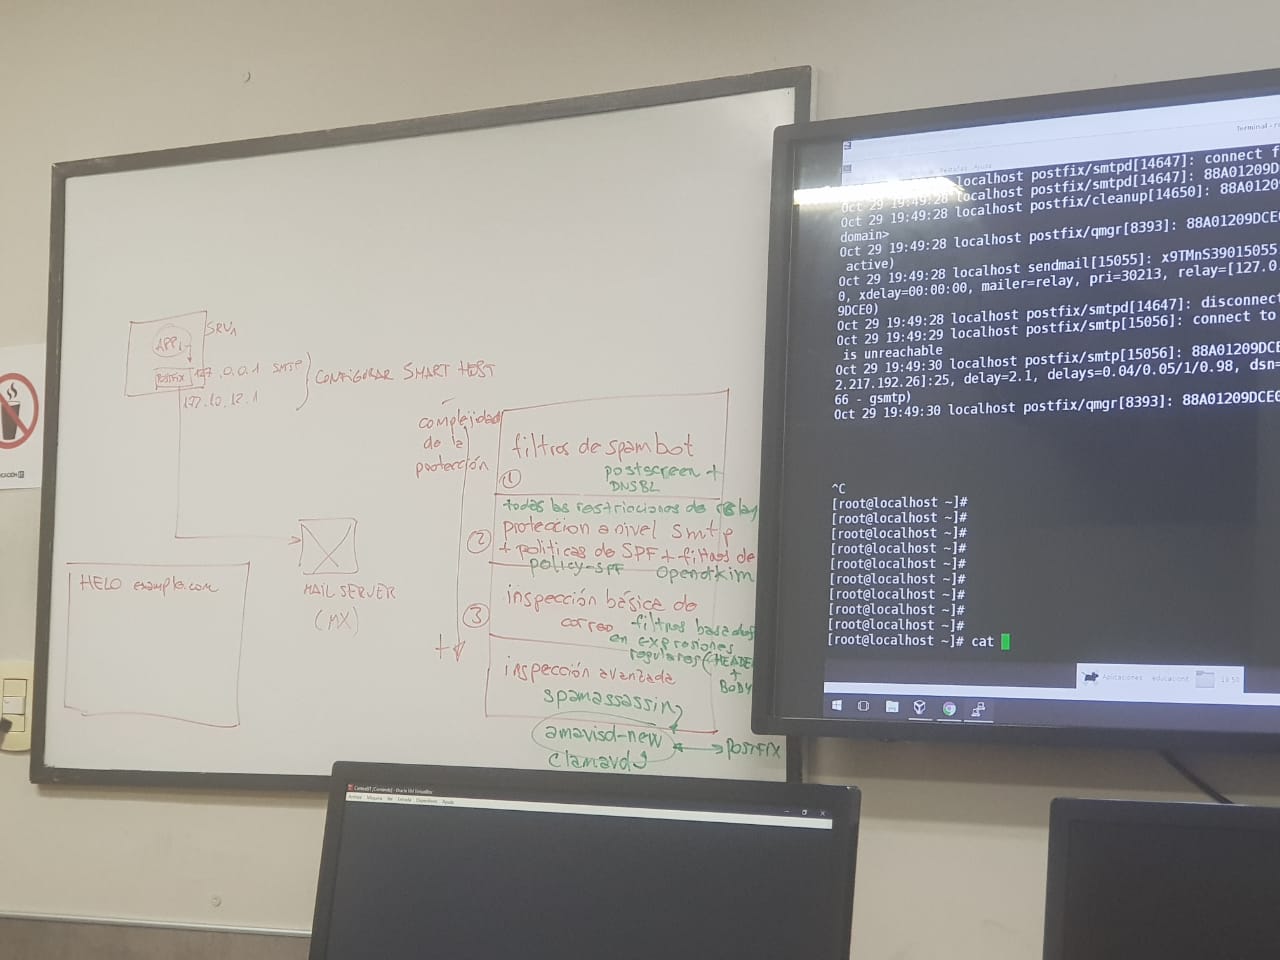 SRV1
APP1
POSTFIX
127.0.0.1 SMTP
CONFIGURAR SMART HOST
MAIL SERVER
(MX)
HELO example.com
complejidad
de la
protección
+
filtros de spambot
postscreen +
DNSBL
1
todas las restricciones de relay
protección a nivel smtp
2
+ políticas de SPF + filtros de
policy-SPF OpenDkim
inspección básica de
correo
3
filtros basados
en expresiones
regulares (HEADE
+
BODY
inspección avanzada
spamassassin
amavisd-new
POSTFIX
clamavd
Terminal
localhost postfix/smtpd[14647]: connect f
localhost postfix/smtpd[14647]: 88A01209D
Oct 29 19:49:28 localhost postfix/cleanup[14650]: 88A0120
domain>
Oct 29 19:49:28 localhost postfix/qmgr[8393]: 88A01209DCE0
active)
Oct 29 19:49:28 localhost sendmail[15055]: x9TMnS39015055
0, xdelay=00:00:00, mailer=relay, pri=30213, relay=[127.0.
9DCE0)
Oct 29 19:49:28 localhost postfix/smtpd[14647]: disconnect
Oct 29 19:49:29 localhost postfix/smtp[15056]: connect to
is unreachable
Oct 29 19:49:30 localhost postfix/smtp[15056]: 88A01209DCE
2.217.192.26]:25, delay=2.1, delays=0.04/0.05/1/0.98, dsn=
66 - gsmtp)
Oct 29 19:49:30 localhost postfix/qmgr[8393]: 88A01209DCE0
^C
[root@localhost ~]#
[root@localhost ~]#
[root@localhost ~]#
[root@localhost ~]#
[root@localhost ~]#
[root@localhost ~]#
[root@localhost ~]#
[root@localhost ~]#
[root@localhost ~]#
[root@localhost ~]# cat
Aplicaciones